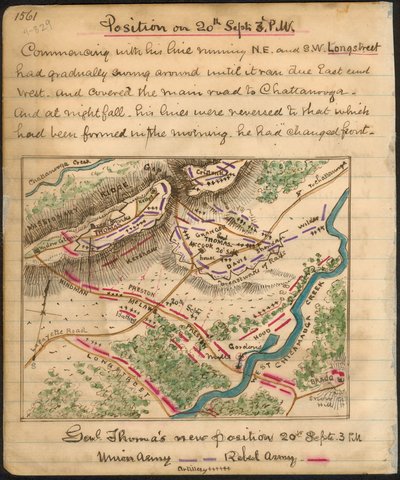 1561
Position on 20th Sept. 3 P.M.
Commencing with his line running N.E. and S.W. Longstreet
had gradually swung around until it ran due East and
West. and covered the main road to Chattanooga.
And at nightfall. his lines were reversed to that which
had been formed in the morning. he had changed front.
Chattanooga Creek
MISSIONARY RIDGE
GAP
to Chattanooga
GRANGER
THOMAS
McCOOK
DAVIS
Wilder
house
Kershaw
HINDMAN
PRESTON
McLAWS
20th Sept
Lafayette Road
LONGSTREET
Gordons
Mills
HOOD
WEST CHICKAMAUGA CREEK
BRAGG
Genl. Thomas's new position 20th Sept. 3 P.M
Union Army
Rebel Army
Artillery